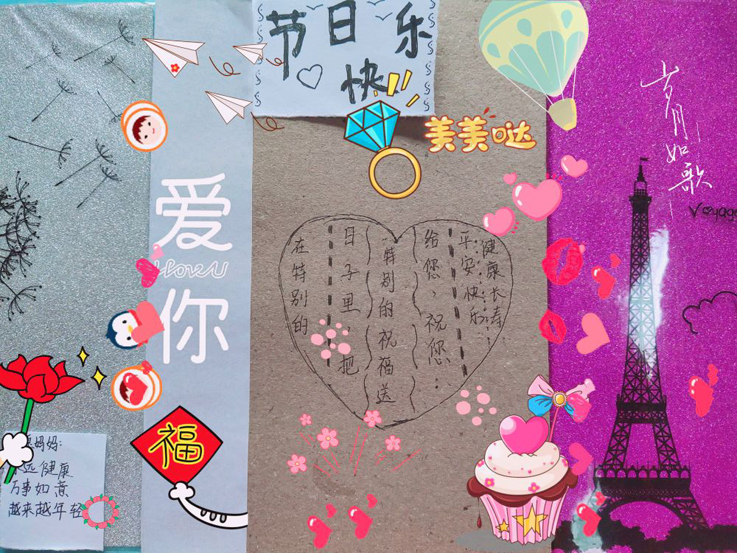 节日乐
快
美美哒
爱你
I love U
岁月如歌
Voyage
在特别的
日子里，把
特别的祝福送
给您，祝您：
平安快乐
健康长寿！
妈妈：
远健康
万事如意
越来越年轻
福